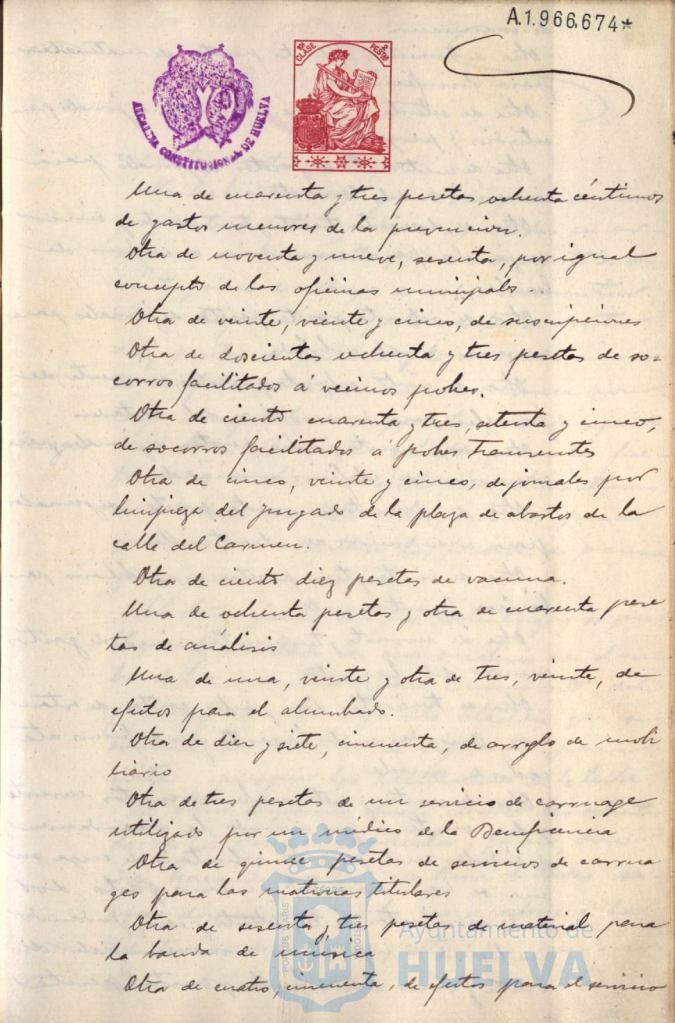 A.1.966,674*
10ª CLASE 2 PESTAS
ALCALDIA CONSTITUCIONAL DE HUELVA
Una de cuarenta y tres pesetas ochenta céntimos
de gastos menores de la prevención.
Otra de noventa y nueve, sesenta, por igual
concepto de las oficinas municipales..
Otra de veinte, veinte y cinco, de suscripciones
Otra de doscientas ochenta y tres pesetas de so-
corros facilitados á vecinos pobres.
Otra de ciento cuarenta y tres, setenta y cinco,
de socorros facilitados á pobres transeuntes
Otra de cinco, veinte y cinco, de jornales por
limpieza del juzgado de la plaza de abastos de la
calle del Carmen.
Otra de ciento diez pesetas de vacuna.
Una de ochenta pesetas y otra de cuarenta pese
tas de análisis
Una de una, veinte y otra de tres, veinte, de
efectos para el alumbrado.
Otra de diez y siete, cincuenta, de arreglo de mobi
liario
Otra de tres pesetas de un servicio de carruage
utilizado por un médico de la Beneficencia
Otra de quince pesetas de servicios de carrua
ges para las matronas titulares
Otra de sesenta y tres pesetas de material para
la banda de música
Otra de cuatro, cincuenta, de efectos para el servicio
Ayuntamiento de
HUELVA